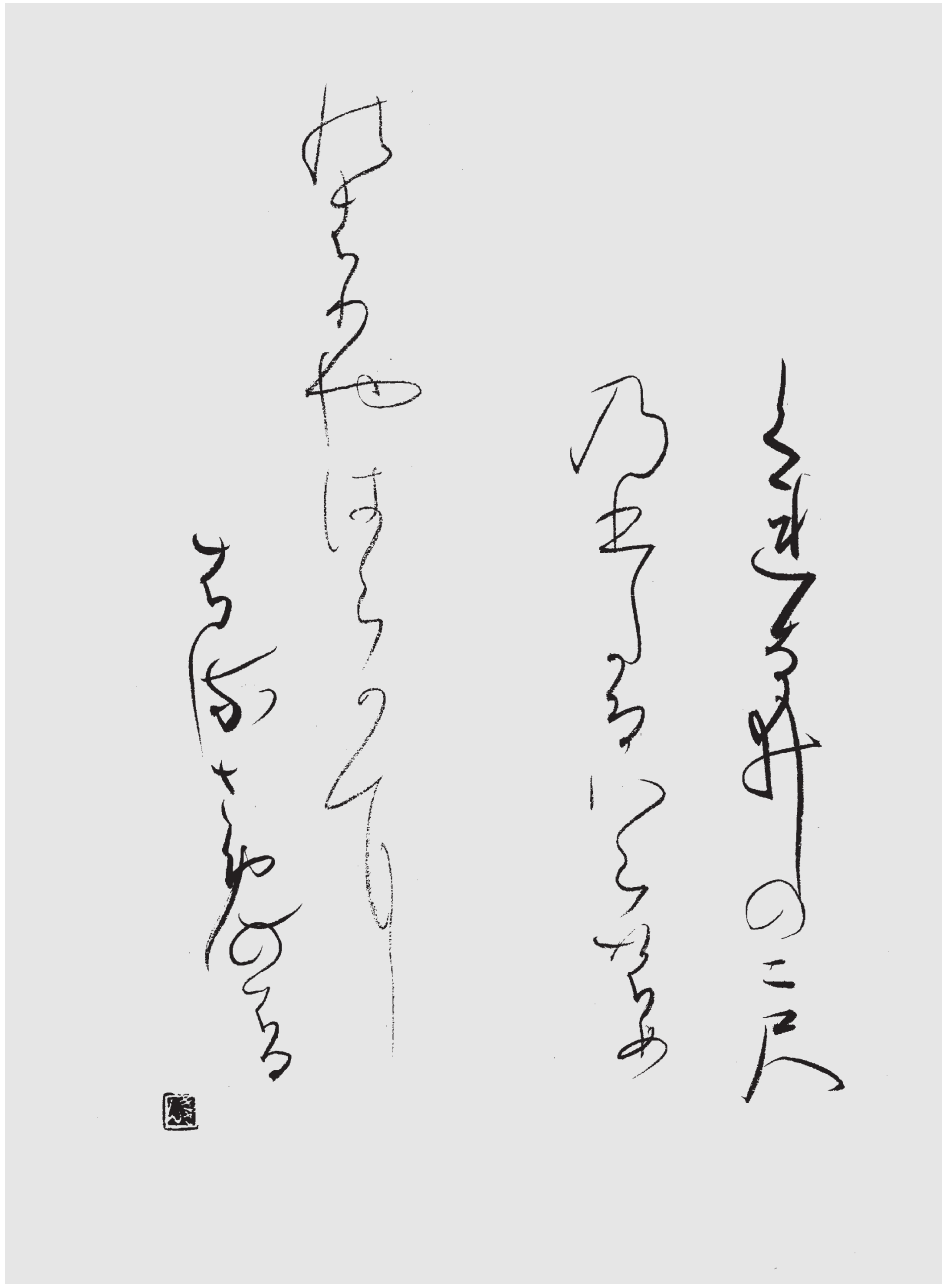 くれなゐの二尺
乃びたるバらのめ
のはりやはらかに
はるさめのふる